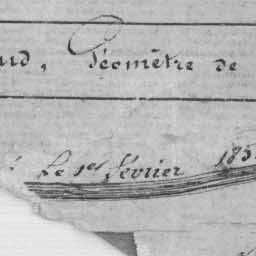 Géomètre de
Le 1er février 185